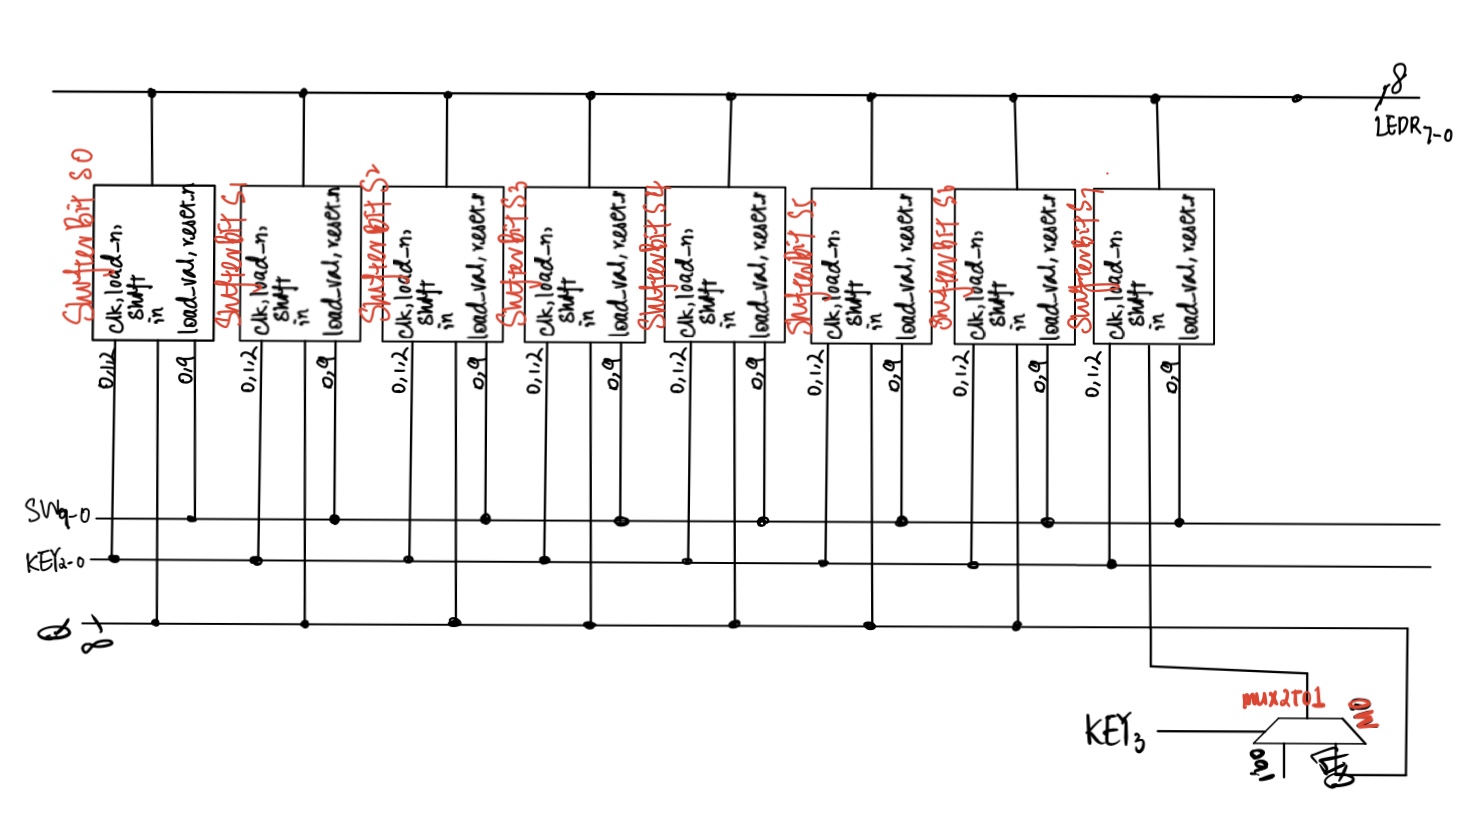 8
LEDR7-0
Shifter Bit S0
clk, load_n,
shift
in
load_val, reset_n
0,1,2
0,9
Shifter Bit S1
clk, load_n,
shift
in
load_val, reset_n
0,1,2
0,9
Shifter Bit S2
clk, load_n,
shift
in
load_val, reset_n
0,1,2
0,9
Shifter Bit S3
clk, load_n,
shift
in
load_val, reset_n
0,1,2
0,9
Shifter Bit S4
clk, load_n,
shift
in
load_val, reset_n
0,1,2
0,9
Shifter Bit S5
clk, load_n,
shift
in
load_val, reset_n
0,1,2
0,9
Shifter Bit S6
clk, load_n,
shift
in
load_val, reset_n
0,1,2
0,9
Shifter Bit S7
clk, load_n,
shift
in
load_val, reset_n
0,1,2
0,9
SW9-0
KEY2-0
8
mux2to1
M0
KEY3